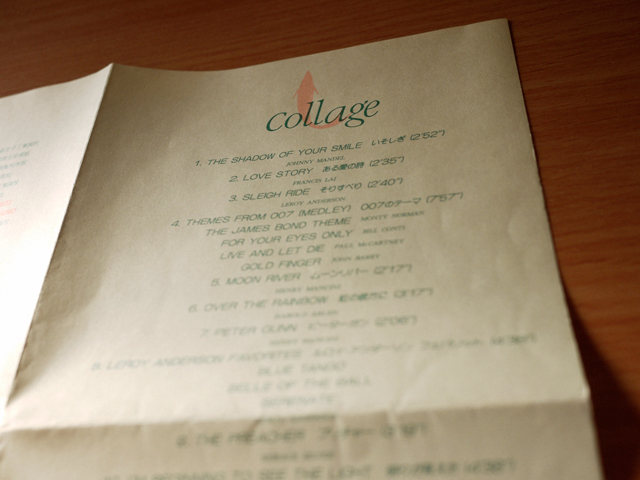 collage
1. THE SHADOW OF YOUR SMILE いそしぎ (2'52")
JOHNNY MANDEL
2. LOVE STORY ある愛の詩 (2'35")
FRANCIS LAI
3. SLEIGH RIDE そりすべり (2'40")
LEROY ANDERSON
4. THEMES FROM 007 (MEDLEY) 007のテーマ (7'57")
THE JAMES BOND THEME MONTY NORMAN
FOR YOUR EYES ONLY BILL CONTI
LIVE AND LET DIE PAUL McCARTNEY
GOLD FINGER JOHN BARRY
5. MOON RIVER ムーンリバー (2'17")
HENRY MANCINI
6. OVER THE RAINBOW 虹の彼方に (3'17")
HAROLD ARLEN
7. PETER GUNN ピーターガン (2'06")
HENRY MANCINI
8. LEROY ANDERSON FAVORITES
BLUE TANGO
BELLE OF THE BALL
SERENATA
9. THE PREACHER
10. I'M BEGINNING TO SEE THE LIGHT